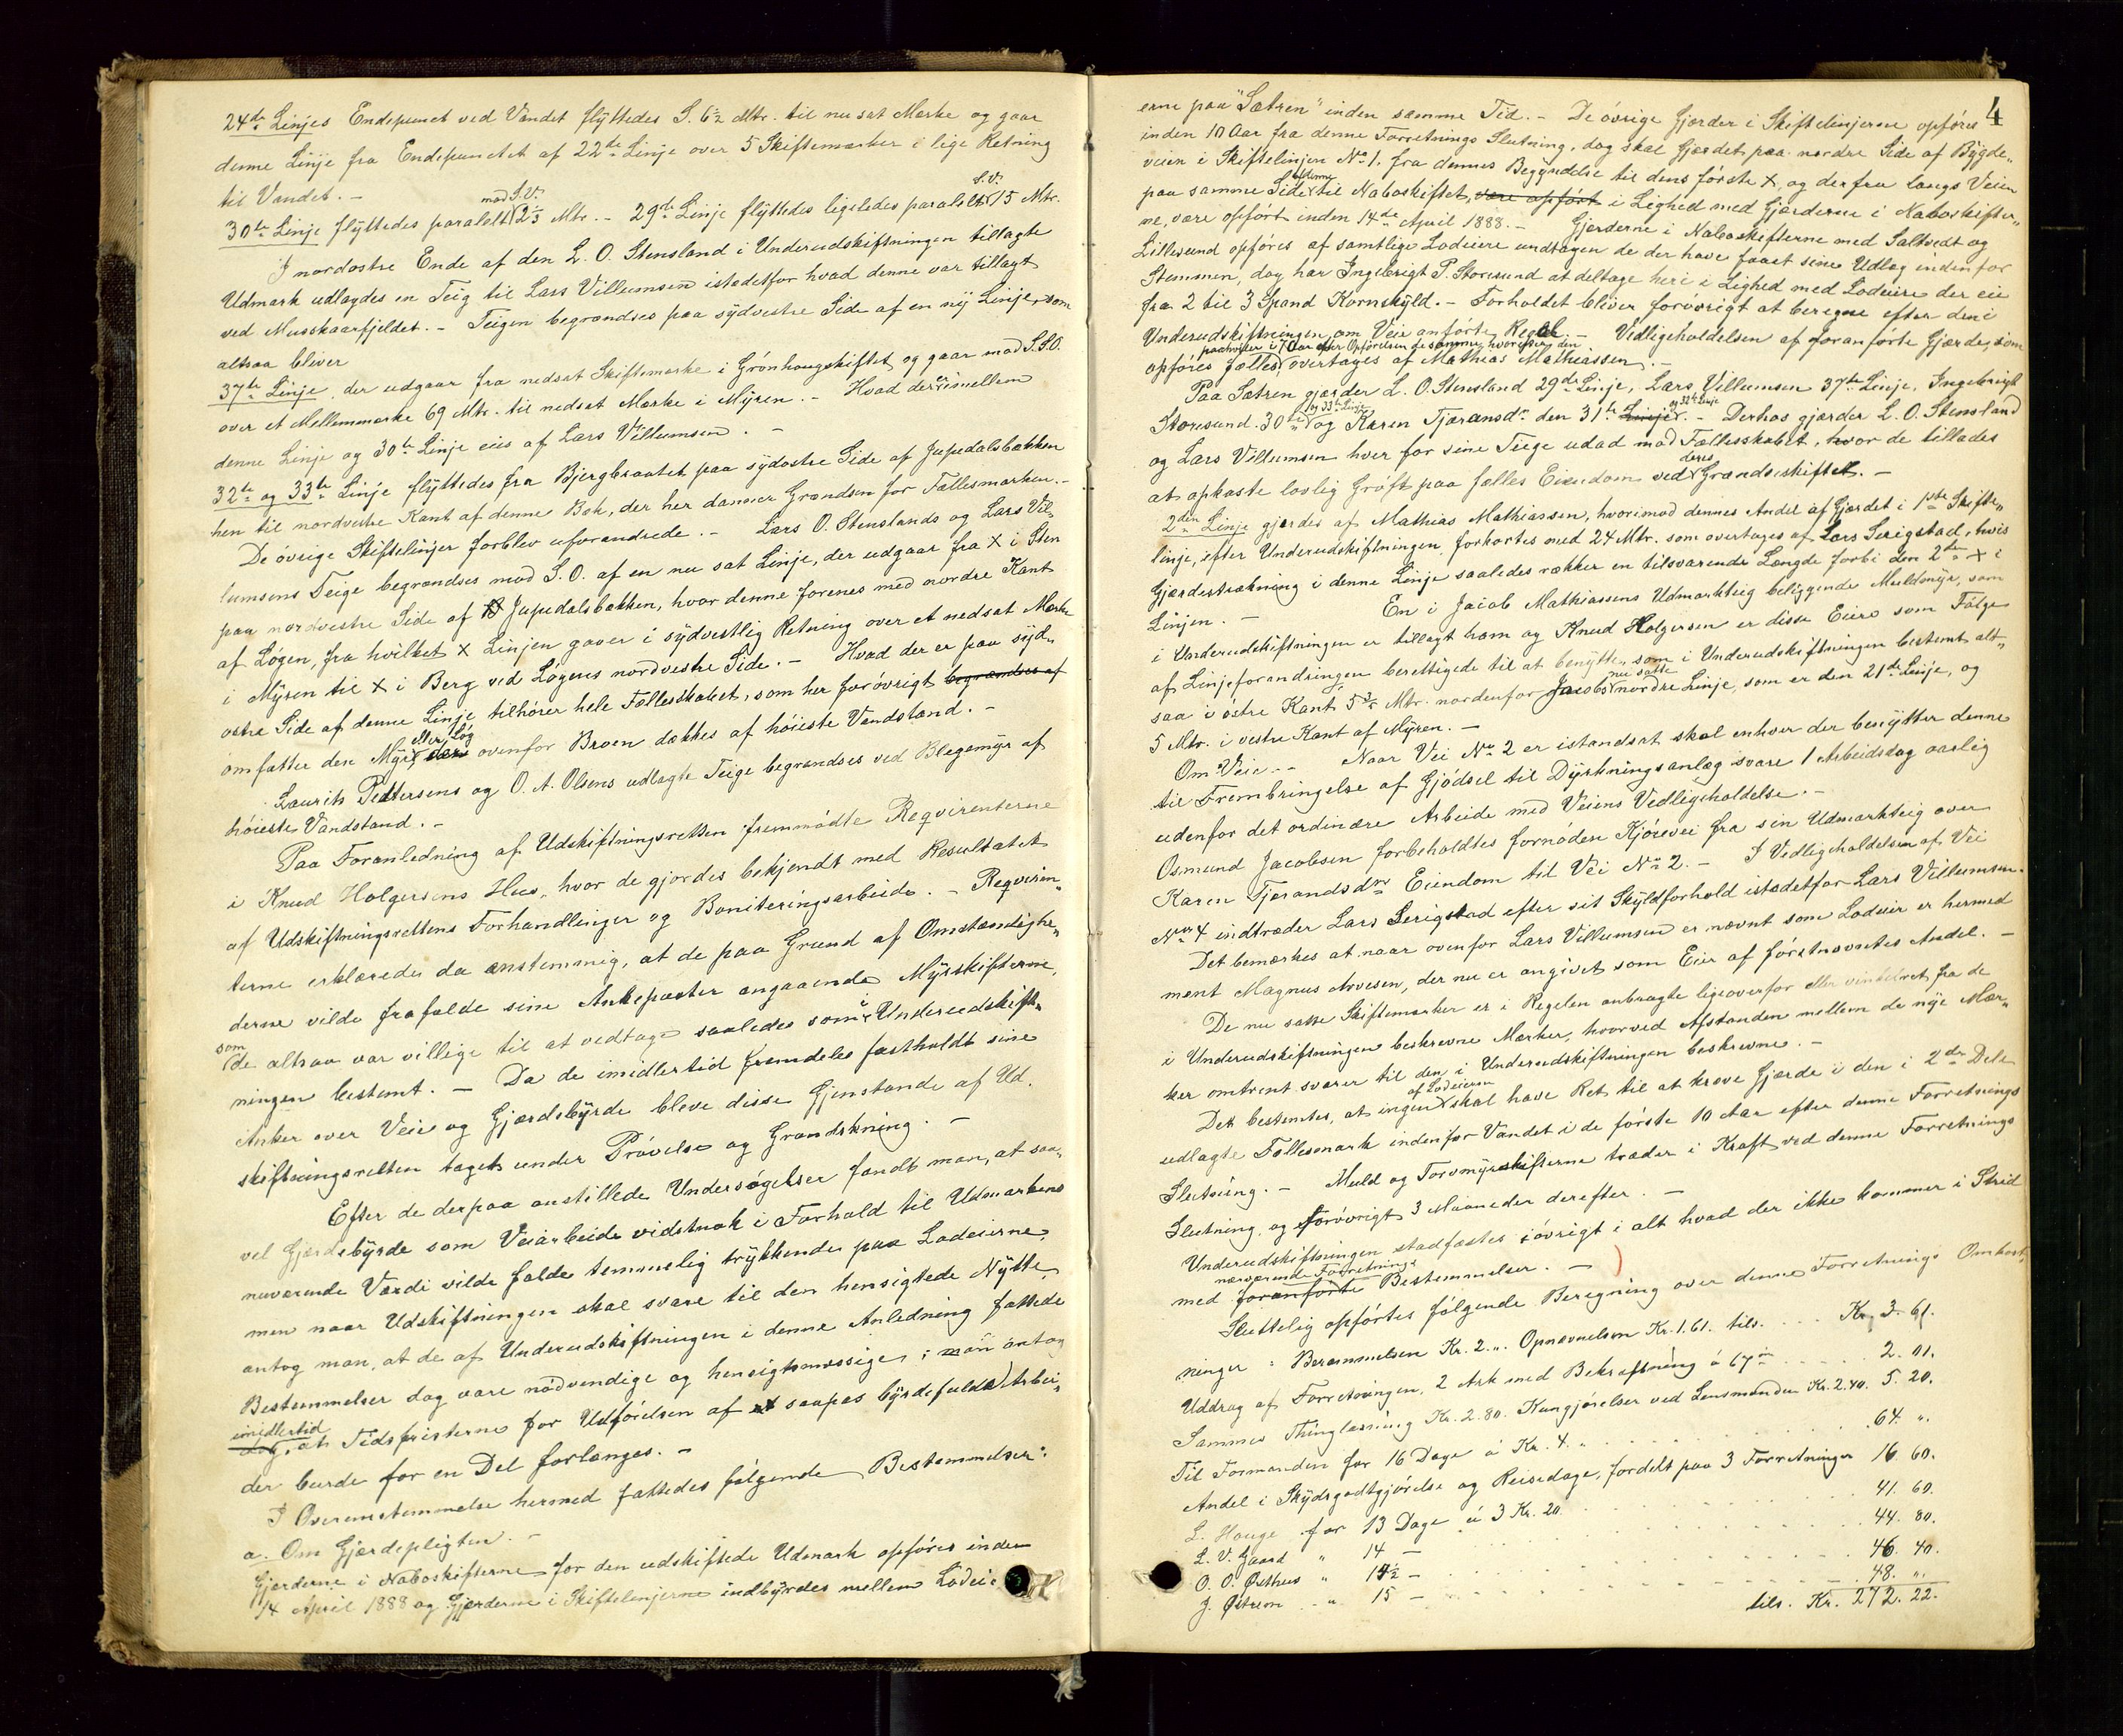 24de Linjes Endepunct ved Vandet flyttedes S. 6½ Mtr. til nu sat Mærke og gaar
denne Linje fra Endepunctet af 22de Linje over 5 Skiftemærker i lige Retning
til Vandet. -
30te Linje flyttedes paralelt mod S.V. 2⅓ Mtr. - 29de Linje flyttedes ligeledes paralelt S.V. 15 Mtr.
I nordostre Ende af den L. O. Stensland i Underudskiftningen tillagte
Udmark udlagdes en Teig til Lars Villumsen istedetfor hvad denne var tillagt
ved Musskaarfjeldet. - Teigen begrændses paa sydvestre Side af en ny Linje, som
altsaa bliver
37te Linje, der udgaar fra nedsat Skiftemærke i Grönhougskiftet og gaar mod S.S.O.
over et Mellemmærke 69 Mtr. til nedsat Mærke i Myren. - Hvad der er imellem
denne Linje og 30te Linje eies af Lars Villumsen. -
32te og 33te Linje flyttedes fra Bjergbraatet paa sydostre Side af Jupedalsbækken
hen til nordvestre Kant af denne Bæk, der her danner Grændsen for Fællesmarken. -
De övrige Skiftelinjer forblev uforandrede. - Lars O. Stenslands og Lars Vil„
lumsens Teige begrændses mod S.O. af en nu sat Linje, der udgaar fra X i Sten
paa nordvestre Side af Jupedalsbækken, hvor denne forenes med nordre Kant
af Løgen, fra hvilket X Linjen gaaer i sydvestlig Retning over et nedsat Mærke
i Myren til X i Berg ved Løgens nordvestre Side. - Hvad der er paa syd„
ostre Side af denne Linje tilhörer hele Fællesskabet, som her forövrigt begrændses af
omfatter den Myr eller Løg, der ovenfor Broen dækkes af höieste Vandstand. -
Laurits Pedersens og O. A. Olsens udlagte Teige begrændses ved Blegemyr af
höieste Vandstand. -
Paa Foranledning af Udskiftningsretten fremmödte Reqvirenterne
i Knud Holgersens Hus, hvor de gjordes bekjendt med Resultatet
af Udskiftningsrettens Forhandlinger og Boniteringsarbeide. - Reqviren„
terne erklærede da enstemmig, at de paa Grund af Omstændighe„
derne vilde frafalde sine Ankeposter angaaende Myrskifterne,
som de altsaa var villige til at vedtage saaledes som i Underudskift„
ningen bestemt. - Da de imidlertid fremdeles fastholdt sine
Anker over Veie og Gjærdebyrde bleve disse Gjenstande af Ud„
skiftningsretten taget under Prövelse og Grandskning. -
Efter de derpaa anstillede Undersögelser fandt man, at saa„
vel Gjærdebyrde som Veiarbeide vidstnok i Forhold til Udmarkens
nuværende Værdi vilde falde temmelig trykkende paa Lodeierne,
men naar Udskiftningen skal svare til den hensigtede Nytte,
antog man, at de af Underudskiftningen i denne Anledning fattede
Bestemmelser dog vare nödvendige og hensigtsmæssige; man antog
imidlertid, at Tidsfristerne for Udförelsen af saapas byrdefulde Arbei„
der burde for en Del forlænges. -
I Overenstemmelse hermed fattedes fölgende Bestemmelser:
a. Om Gjærdepligten. -
Gjærderne i Naboskifterne for den udskiftede Udmark opföres inden
14 April 1888 og Gjærderne i Skiftelinjerne indbyrdes mellem Lodei„
4
erne paa "Sætren" inden samme Tid. - De övrige Gjærder i Skiftelinjerne opföres
inden 10 Aar fra denne Forretnings Slutning, dog skal Gjærdet paa nordre Side af Bygde„
veien i Skiftelinjen No 1. fra dennes Begyndelse til dens förste X, og derfra langs Veien
paa samme Side af denne til Naboskiftet, være opfört i Lighed med Gjærderne i Naboskifter„
ne, være opfört inden 14de April 1888. - Gjærderne i Naboskifterne med Saltvedt og
Lillesund opföres af samtlige Lodeiere undtagen de der have faaet sine Udlæg indenfor
Stemmen, dog har Ingebrigt P. Storesund at deltage heri i Lighed med Lodeiere der eie
fra 2 til 3 Spand Kornskyld. - Forholdet bliver forövrigt at beregne efter den i
Underudskiftningen om Veie anförte Regel. - Vedligeholdelsen af foranförte Gjærde, som
opföres fælles, paahviler i 10 Aar efter Opförelsen de samme, hvorefter den overtages af Mathias Mathiassen. -
Paa Sætren gjærder L. O. Stensland 29de Linje, Lars Villumsen 37te Linje, Ingebrigt
Storesund 30te og 33te Linje og Karen Tjærandsdtr den 31te Linje og 32te Linje. - Derhos gjærder L. O. Stensland
og Lars Villumsen hver for sine Teige udad mod Fællesskabet, hvor de tillades
at opkaste lovlig Gröft paa fælles Eiendom ved deres Grændseskiftet. -
2den Linje gjærdes af Mathias Mathiassen, hvorimod dennes Andel af Gjærdet i 1ste Skifte„
linje, efter Underudskiftningen, forkortes med 24 Mtr. som overtages af Lars Serigstad, hvis
Gjærdestrækning i denne Linje saaledes rækker en tilsvarende Længde forbi den 2den X i
Linjen. - En i Jacob Mathiassens Udmarkteig beliggende Muldmyr, som
i Underudskiftningen er tillagt ham og Knud Holgersen er disse Eiere som Fölge
af Linjeforandringen berettigede til at benytte, som i Underudskiftningen bestemt alt„
saa i östre Kant 5⅔ Mtr. nordenfor Jacobs nu satte nordre Linje, som er den 21de Linje, og
5 Mtr. i vestre Kant af Myren. -
Om Veie. - Naar Vei No 2 er istandsat skal enhver der benytter denne
til Frembringelse af Gjödsel til Dyrkningsanlæg svare 1 Arbeidsdag aarlig
udenfor det ordinære Arbeide med Veiens Vedligeholdelse. -
Osmund Jacobsen forbeholdtes fornöden Kjörevei fra sin Udmarkteig over
Karen Tjærandsdtr Eiendom til Vei No 2. - I Vedligeholdelsen af Vei
No 4 indtræder Lars Serigstad efter sit Skyldforhold istedetfor Lars Villumsen.
Det bemærkes at naar ovenfor Lars Villumsen er nævnt som Lodeier er hermed
ment Magnus Arvesen, der nu er angivet som Eier af förstnævntes Andel. -
De nu satte Skiftemærker er i Regelen anbragte ligeoverfor eller vinkelret fra de
i Underudskiftningen beskrevne Mærker, hvorved Afstanden mellem de nye Mær„
ker omtrent svarer til den i Underudskiftningen beskrevne. -
Det bestemtes, at ingen af Lodeierne skal have Ret til at kræve Gjærde i den i 2de Dele
udlagte Fællesmark indenfor Vandet i de förste 10 Aar efter denne Forretnings
Slutning. - Muld og Torvmyrskifterne træder i Kraft ved denne Forretnings
Slutning, og forövrigt 3 Maaneder derefter. -
Underudskiftningen stadfæstes iövrigt i alt hvad der ikke kommer i Strid
med nærværende Forretnings foranförte Bestemmelser. -
Sluttelig opförtes fölgende Beregning over denne Forretnings Omkost„
ninger: Berammelsen Kr. 2.„. Opnævnelsen Kr. 1.61. tils. ... Kr. 3. 61.
Uddrag af Forretningen, 2 Ark med Bekræftning á 67 ... 2. 01.
Sammes Thinglæsning Kr. 2.80. Kungjörelser ved Lensmanden Kr. 2.40. 5. 20.
Til Formanden for 16 Dage á Kr. 4. „ ... 64. „.
Andel i Skydsgodtgjörelse og Reisedage, fordelt paa 3 Forretninger 16. 60.
L. Houge for 13 Dage á 3 Kr. 20 ... 41. 60.
L. V. Gaard „ 14 - ... 44. 80.
O. O. Østhus „ 14½ - ... 46. 40.
J. Østrem „ 15 - ... 48. „.
tils. Kr. 272. 22.